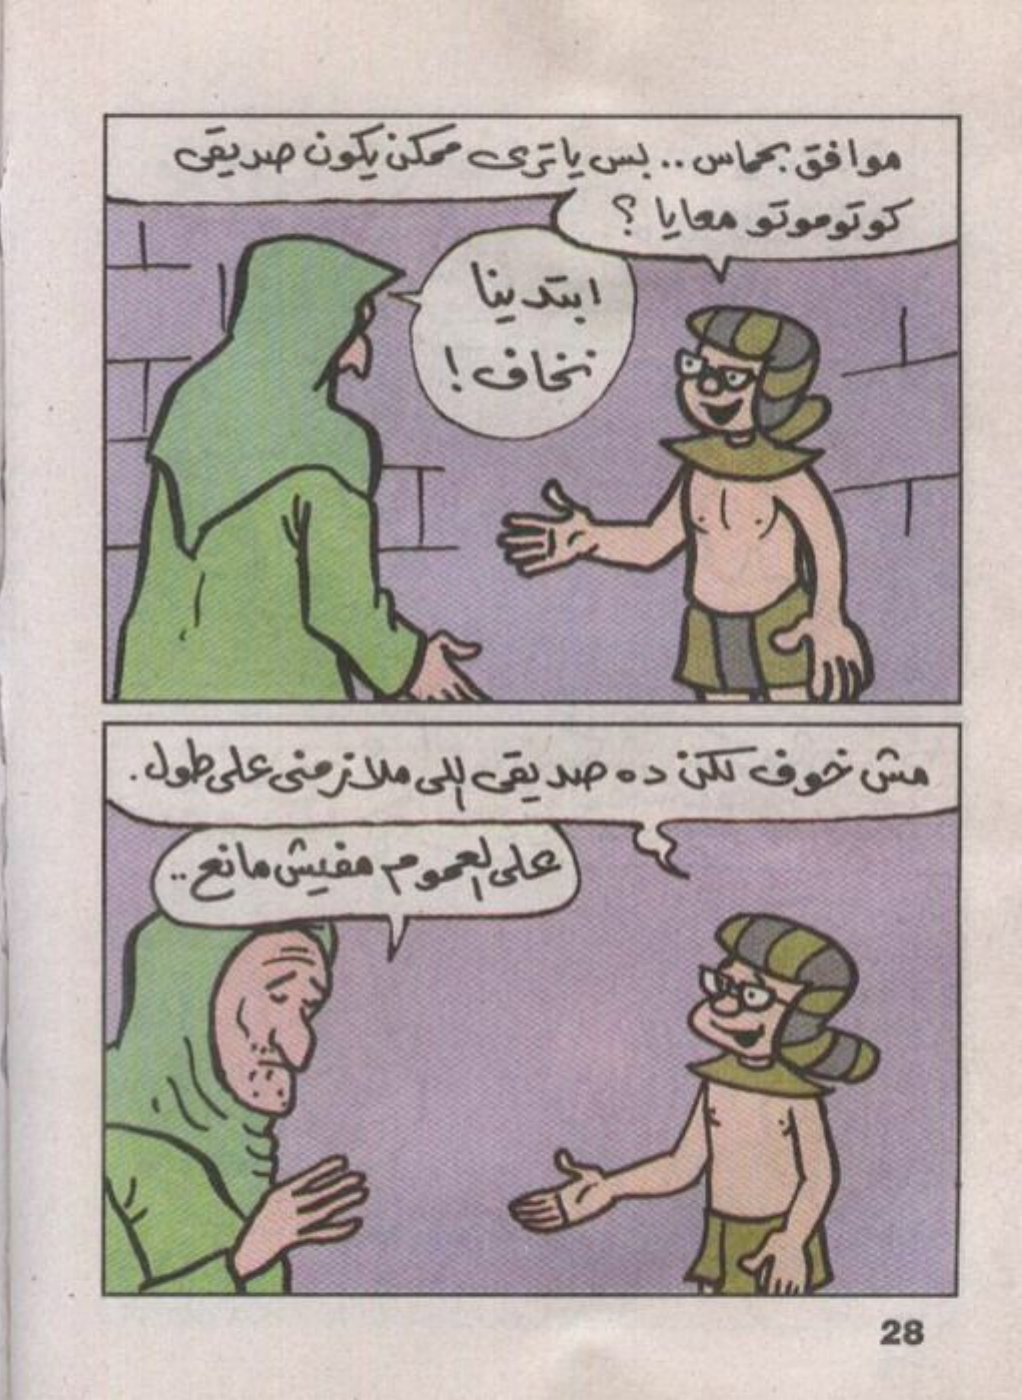 موافق بحماس.. بس ياترى ممكن يكون صديقى
كوتوموتو معايا ؟
ابتدينا
نخاف !
مش خوف لكن ده صديقى اللى ملازمنى على طول.
على العموم مفيش مانع..
28